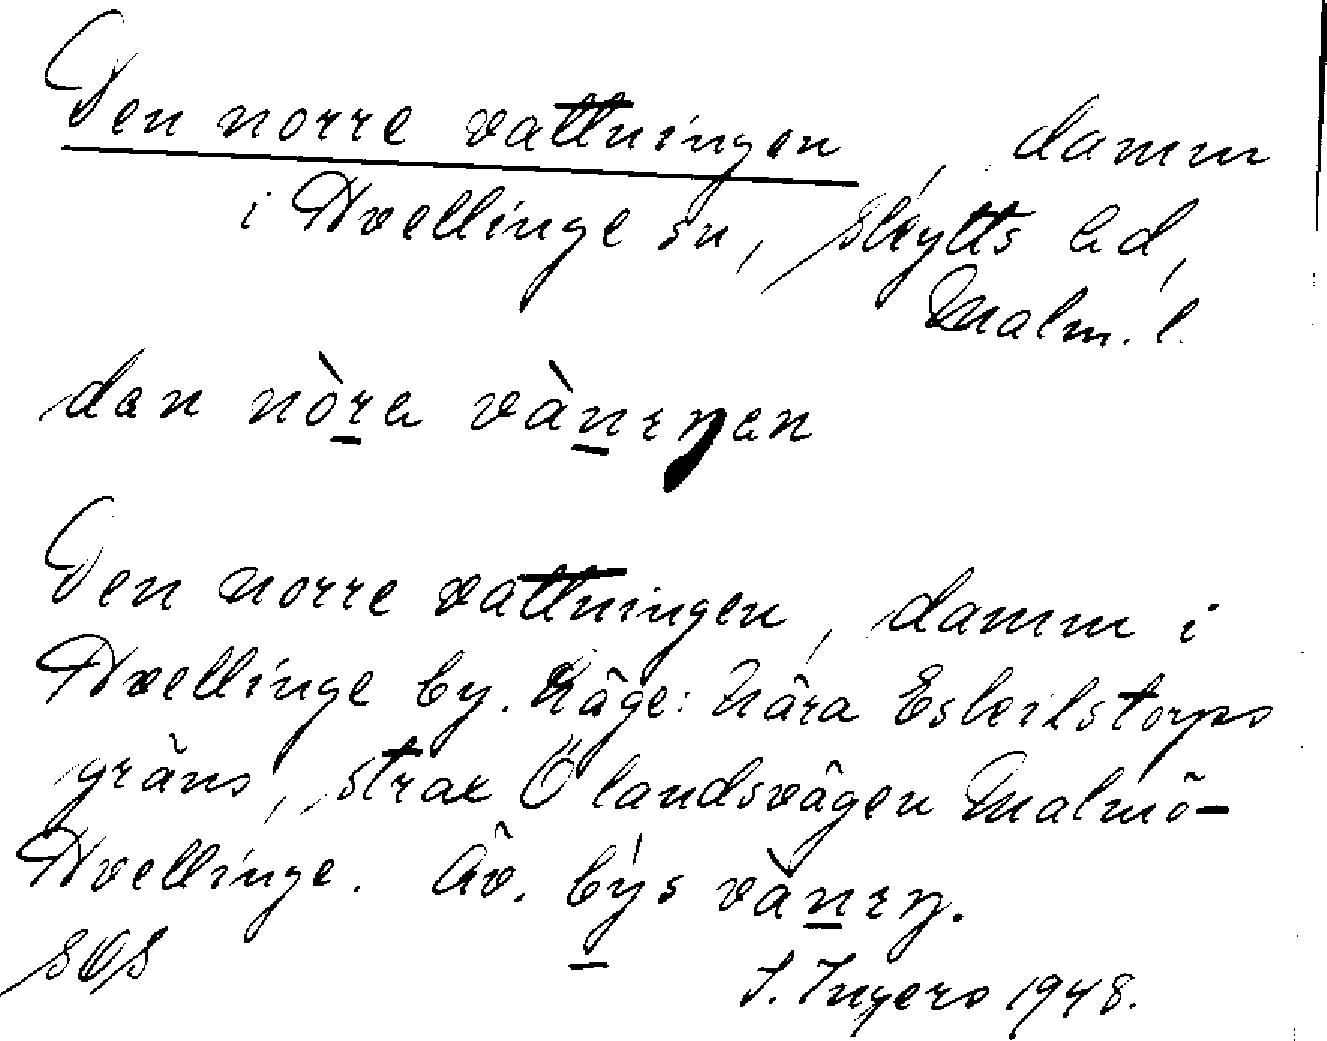 Den norre vattningen, damm
i Hvellinge sn, Skytts hd,
Malm. l.
dan nòra vànıŋan
Den norre vattningen, damm i
Hvellinge by. Läge: Nära Eskilstorps
gräns, strax Ö landsvägen Malmö-
Hvellinge. Äv. býs vànıŋ.
SOS
I. Ingers 1948.